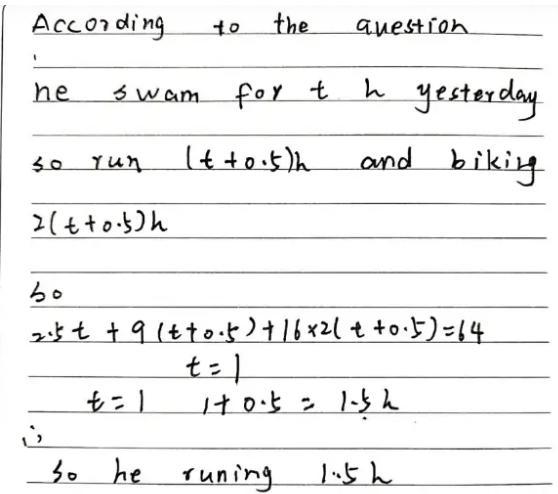 According to the question
he swam for t h yesterday
so run (t+0.5)h and biking
2(t+0.5)h
so
2.5t + 9(t+0.5)+16×2(t+0.5)=64
t=1
t=1 1+0.5 = 1.5h
∴
so he runing 1.5h